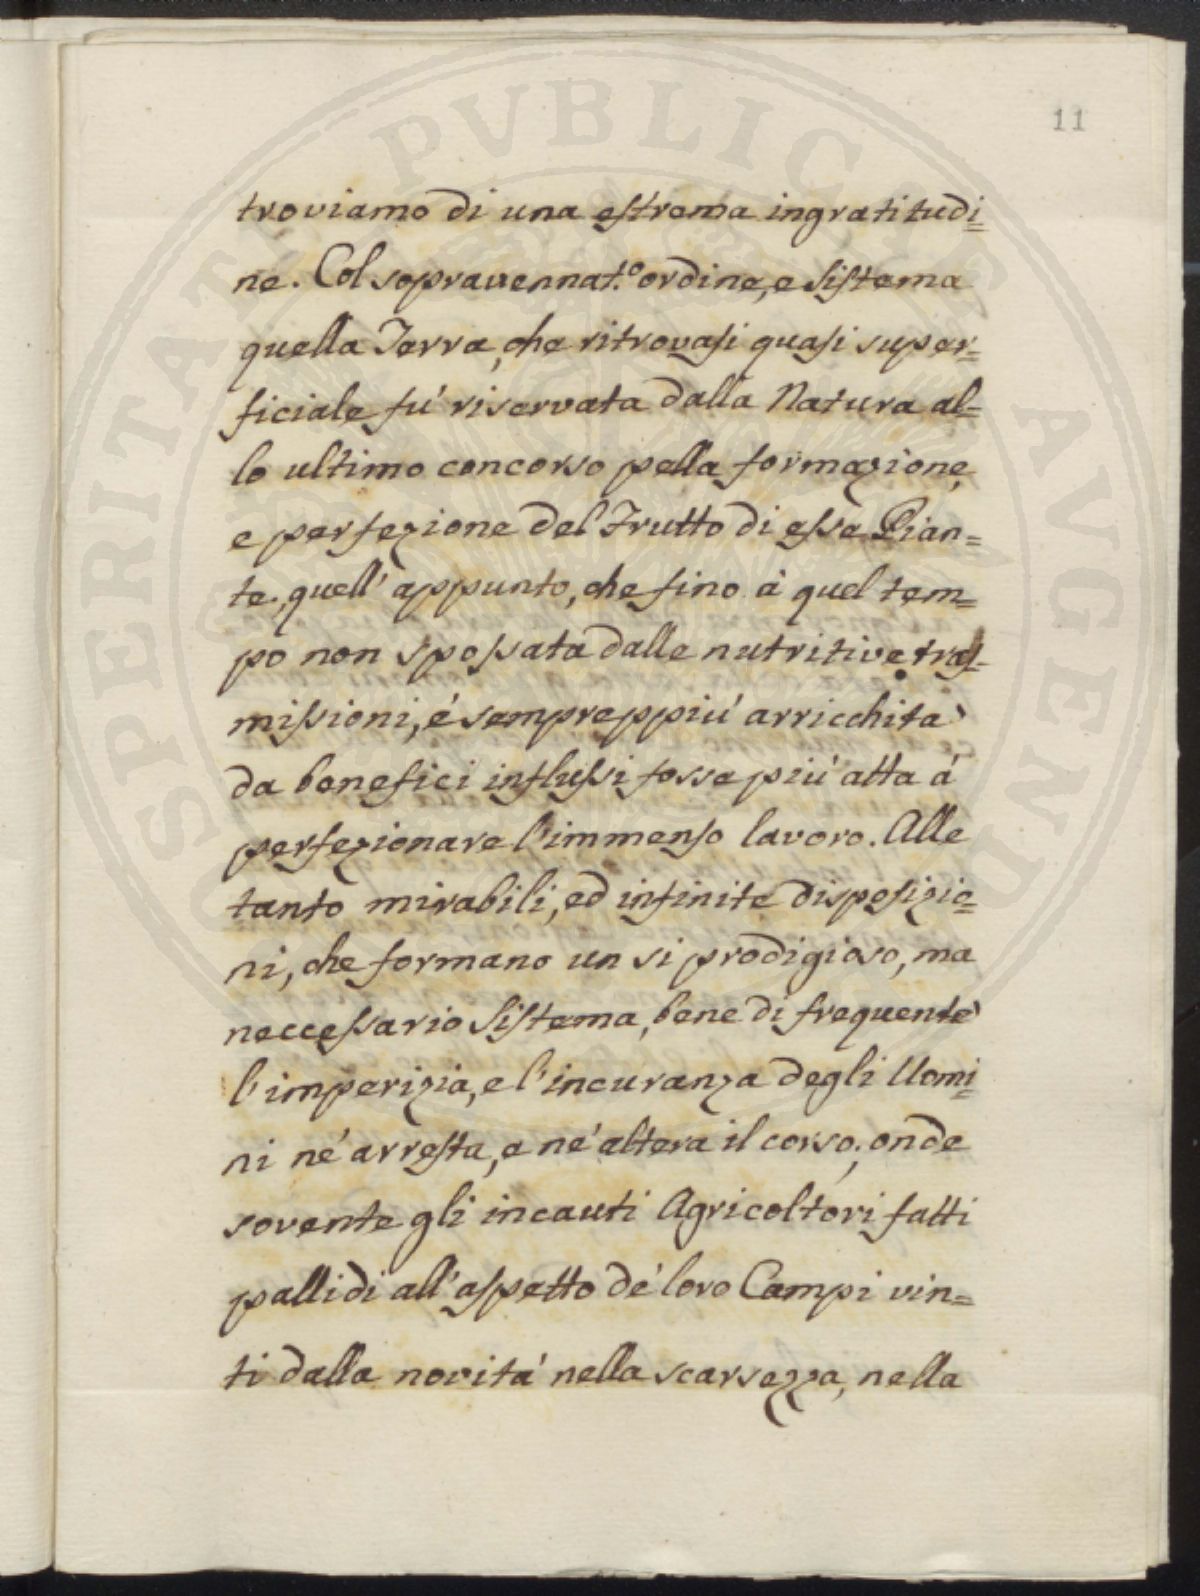 11
troviamo di una estrema ingratitudi=
ne. Col sopravennat.º ordine, e Sistema
quella Terra, che ritrovasi quasi super=
ficiale fú riservata dalla Natura al=
lo ultimo concorso pella formazione,
e perfezione del Frutto di esse Pian=
te, quell' appunto, che fino á quel tem=
po non spossata dalle nutritive tras=
missioni, é semprep piú arricchita
da benefici influssi fosse piú atta á
perfezionare l'immenso lavoro. Alle
tanto mirabili, ed infinite disposizio=
ni, che formano un si prodigioso, ma
neccessario Sistema, bene di frequente
l'imperizia, e l'incuranza degli Uomi=
ni né arresta, e né altera il corso; onde
sovente gli incauti Agricoltori fatti
pallidi all' aspetto dé loro Campi vin=
ti dalla novitá nella scarsezza, nella
SPERITATI PVBLICAE AVGENDAE